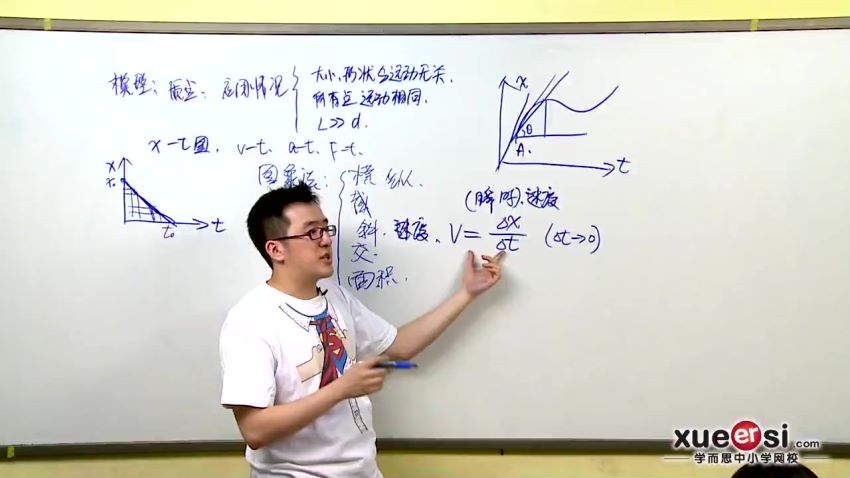 模型：质点：应用情况
大小、形状与运动无关.
所有点运动相同.
L>>d.
x-t图, v-t, a-t, F-t.
图象法：
横 纵.
截
斜. 速度.
交.
面积.
x
x₀
t₀
t
x
θ
A.
t
(瞬时).速度
V=Δx/Δt (Δt→0)
xueersi.com
学而思中小学网校